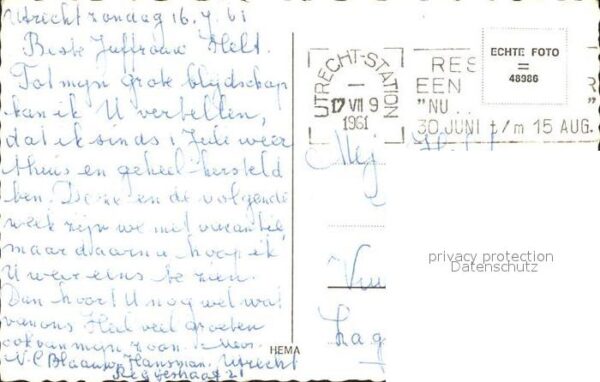 Utrecht zondag 16.7.61
Beste Juffrouw Helt.
Tot mijn grote blijdschap
kan ik U vertellen,
dat ik sinds 1 Juli weer
thuis en geheel hersteld
ben. Deze en de volgende
week zijn we met vacantie,
maar daarna hoop ik
U weer eens te zien.
Dan hoort U nog wel wat
van ons. Heel veel groeten
ook van mijn zoon. Mevr.
N. C. Blaauw-Hansman. Utrecht
21
HEMA
UTRECHT-STATION
17 VII 9
1961
RES
EEN R
"NU .. "
30 JUNI t/m 15 AUG.
ECHTE FOTO
=
48986
Mej
Vin
Lag
privacy protection
Datenschutz